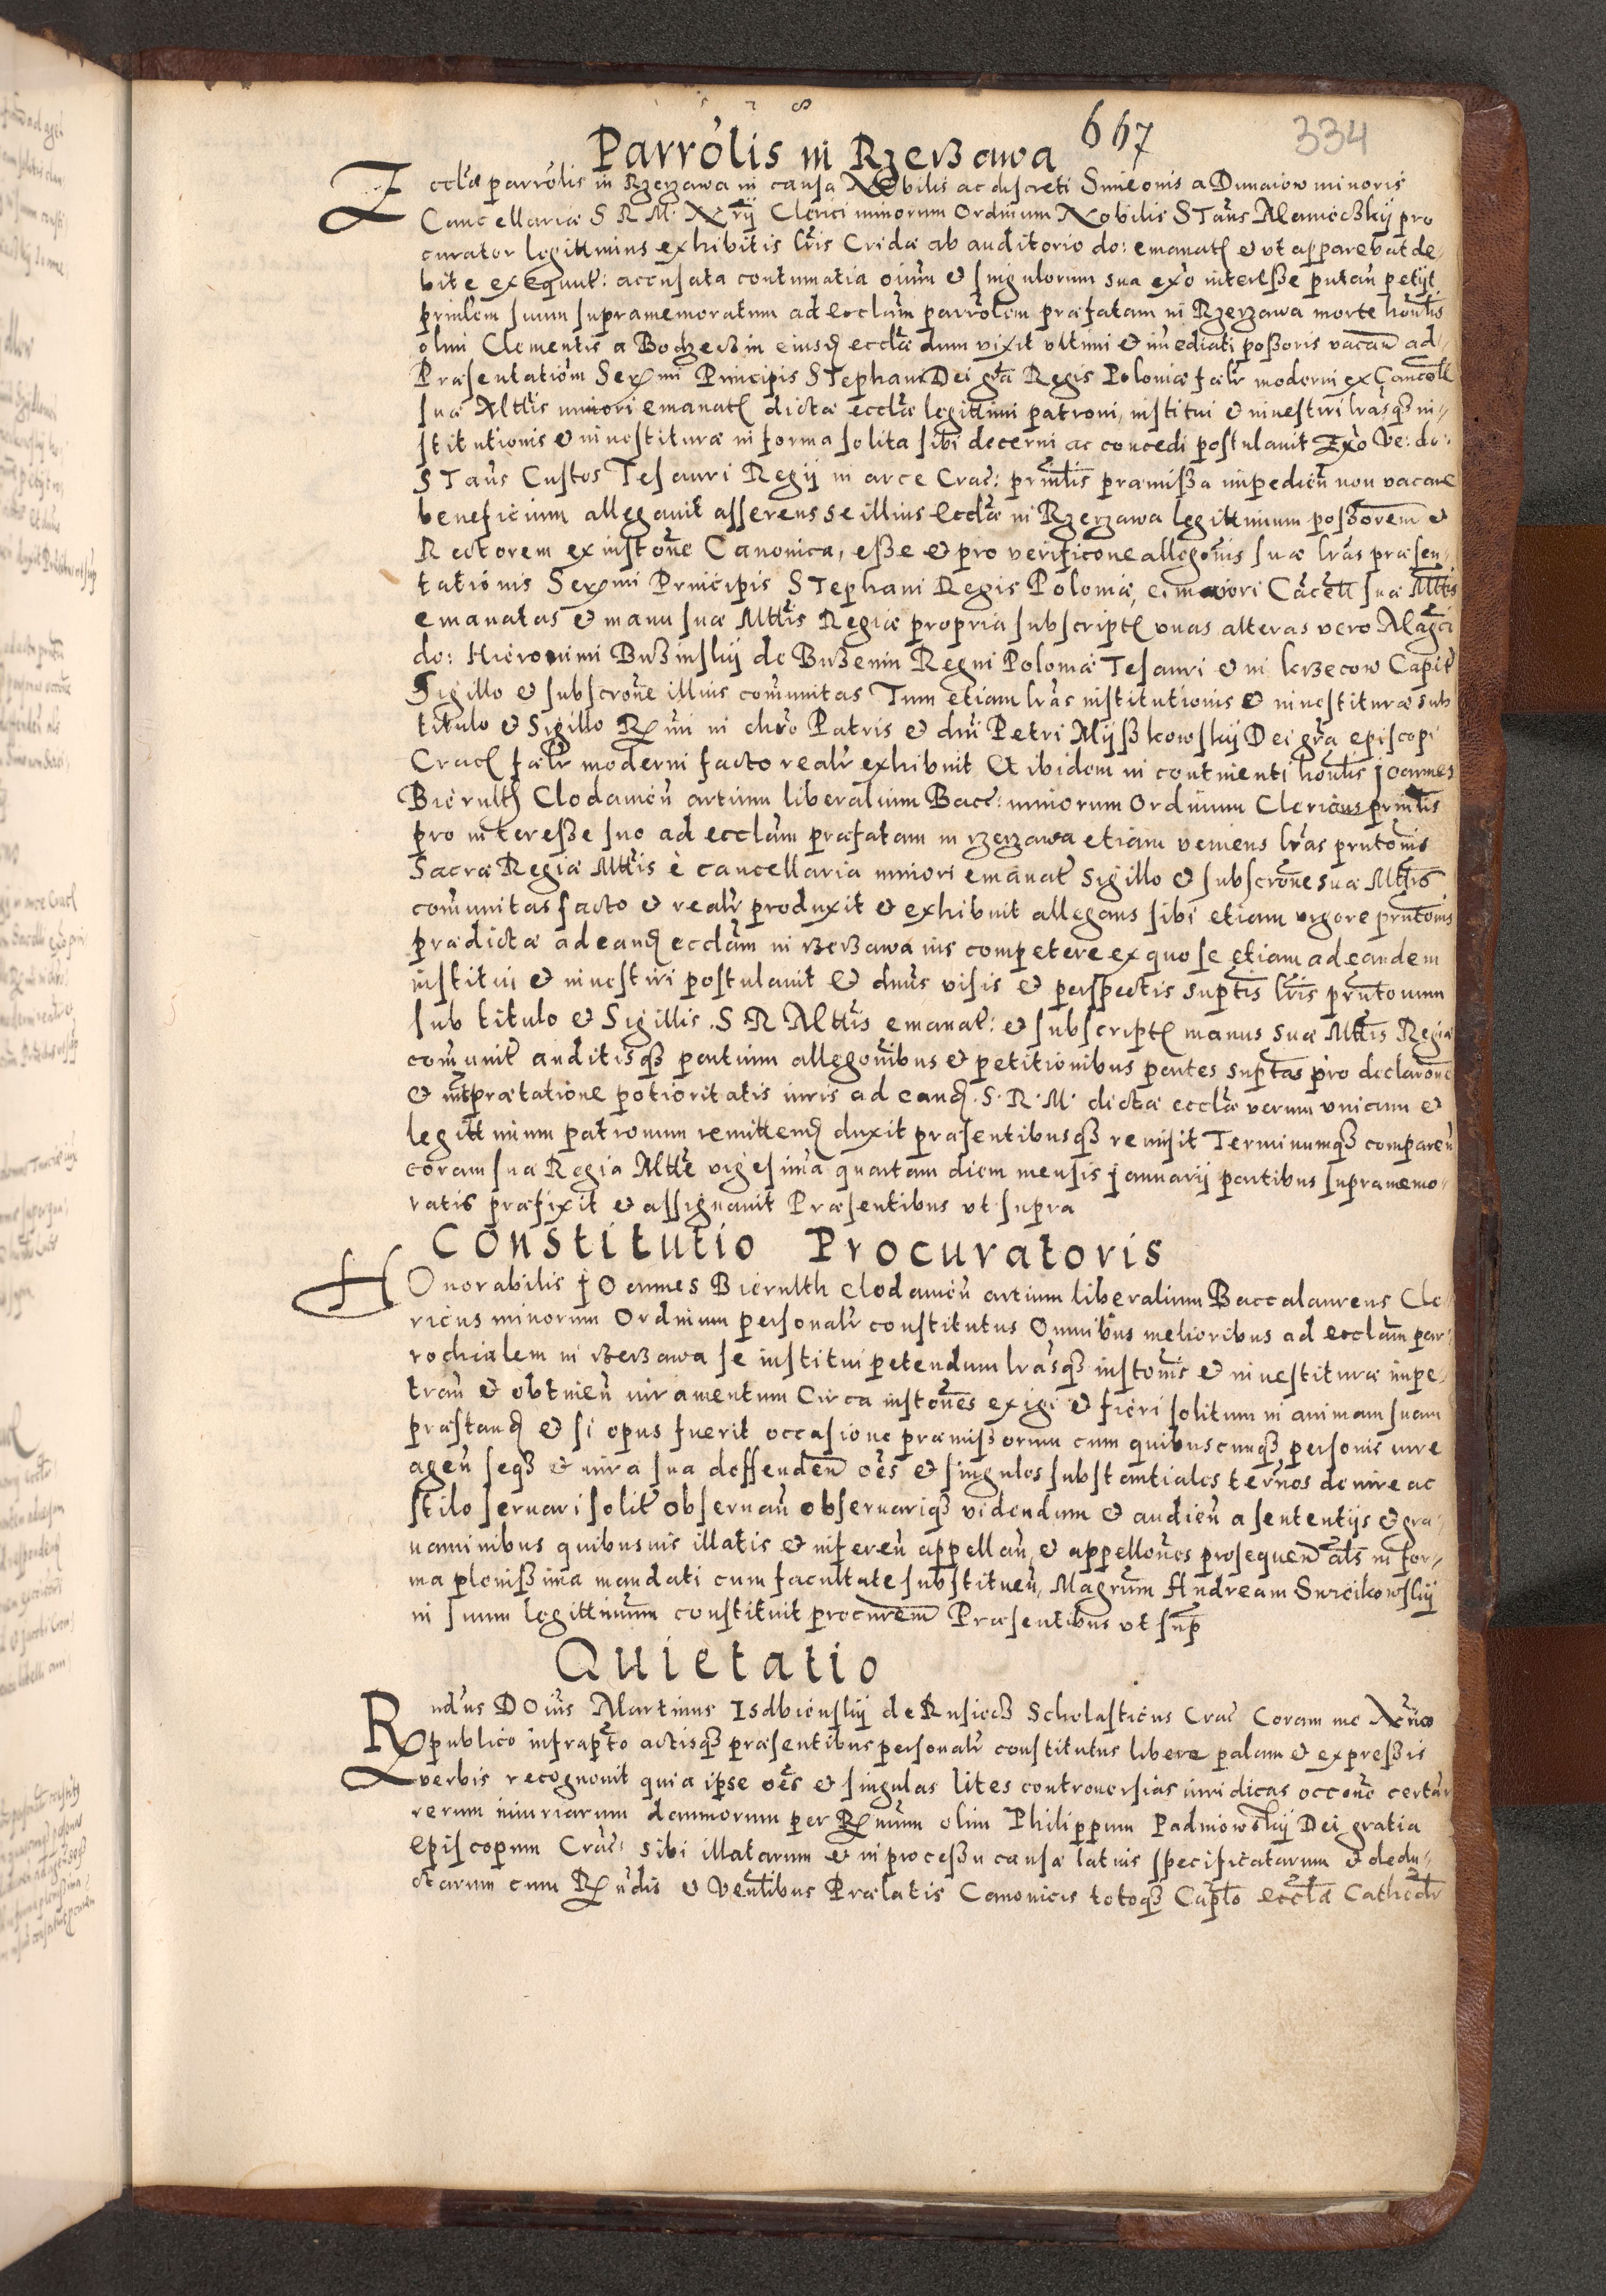 1578
667
334
Parrolis in Rzerzawa
Ecclæ parrolis in Rzerzawa in causa Nobilis ac discreti Simeonis a Dunaiow minoris
Cancellariæ S R M. Nrij Clerici minorum Ordinum Nobilis STaus pro
curator legittimus exhibitis lris Cridæ ab auditorio do: emanat et vt apparebat de-
bite exequut: accusata contumatia oium et singulorum sua exo interesse putan petijt
prinlem suum supramemoratum ad ecclam parrolem præfatam in Rzerzawa morte honlis
olim Clementis a Bodzeczin eiusq ecclæ dum vixit vltimi et imediati possoris vacan ad
Præsentatiom Serxmi Principis STephani Dei gra Regis Poloniæ fælr moderni ex Cancell
suæ Mttis minori emanat dictæ ecclæ legittimi patroni, institui et inuestiri lrasq in-
stitutionis et inuestituræ in forma solita sibi decerni ac concedi postulauit Exo Ve: do:
STaus Custos Tesauri Regij in arce Crac: prinlis præmissa impedien non vacare
beneficium allegauit asserens se illius Ecclæ in Rzerzawa legittimum possorem et
Rectorem ex instone Canonica, esse et pro verificone allegonis suæ lras præsen-
tationis Serxmi Principis STephani Regis Poloniæ, e maiori Cacell suæ Mttis
emanatas et manu suæ Mttis Regiæ propria subscript vnas alteras vero Magci
do: Hieronimi Buzinskij de Buzenin Regni Poloniæ Tesauri et in Capit
Sigillo et subscrone illius comunitas Tum etiam lras institutionis et inuestituræ sub
titulo et Sigillo Rxmi in chro Patris et dni Petri Mijszkowskij Dei gra episcopi
Crac fælr moderni facto realr exhibuit Et ibidem in continenti honlis Joannes
Bierulth Clodauien artium liberalium Bacc: minorum Ordinum Clericus prinlis
pro interesse suo ad ecclam præfatam in rzerzawa etiam veniens lras prntonis
Sacræ Regiæ Mttis è cancellaria minori emanat Sigillo et subscrone suæ Mttis
comunitas facto et realr produxit et exhibuit allegans sibi etiam vigore prntonis
prædictæ ad eand ecclam in rzerzawa ius competere ex quo se etiam ad eandem
institui et inuestiri postulauit Et dnus visis et perspectis suptis lris prntonum
sub titulo et Sigillis S R Mttis emanat: et subscript manus suæ Mttis Regiæ
comunit auditisq partium allegonibus et petitionibus partes suptas pro declarone
et intprætatione potioritatis iuris ad eand. S. R. M. dictæ ecclæ verum vnicum et
legittimum patronum remittend duxit præsentibusq remisit Terminumq comparen
coram sua Regia Mtte vigesima quartam diem mensis januarij partibus supramemo-
ratis præfixit et assignauit Præsentibus vt supra
Constitutio Procuratoris
Honorabilis jOannes Bierulth Clodauien artium liberalium Baccalaureus Cle-
ricus minorum Ordinum personalr constitutus Omnibus melioribus ad ecclam par-
rochialem in rzerzawa se institui petendum lrasq instonis et inuestituræ impe-
tran et obtinen iuramentum Circa instones exigi et fieri solitum in animam suam
præstand et si opus fuerit occasione præmissorum cum quibuscunq personis iure
agen seq et iura sua deffenden oes et singulos substantiales ternos de iure ac
stilo seruari solit obseruan obseruariq videndum et audien a sententijs et gra-
uaminibus quibusuis illatis et inferen appellan, et appellones prosequen als in for-
ma plenissima mandati cum facultate substituen, Magrum Andream Surcikowskij
in suum legittimum constituit procurem Præsentibus vt sup
Quietatio
Rndus DOius Martinus Isdbienskij de Rusiecz Scholasticus Crac Coram me Nrio
publico infrapto actisq præsentibus personalr constitutus libere palam et expressis
verbis recognouit quia ipse oes et singulas lites controuersias iuridicas occone certar
rerum iniuriarum damnorum per Rxmum olim Philippum Padniowskij Dei gratia
episcopum Crac: sibi illatarum et in processu causæ latius specificatarum et dedu-
ctarum cum Rxndis et Venlibus Prælatis Canonicis totoq Caplo ecclæ Cathedr